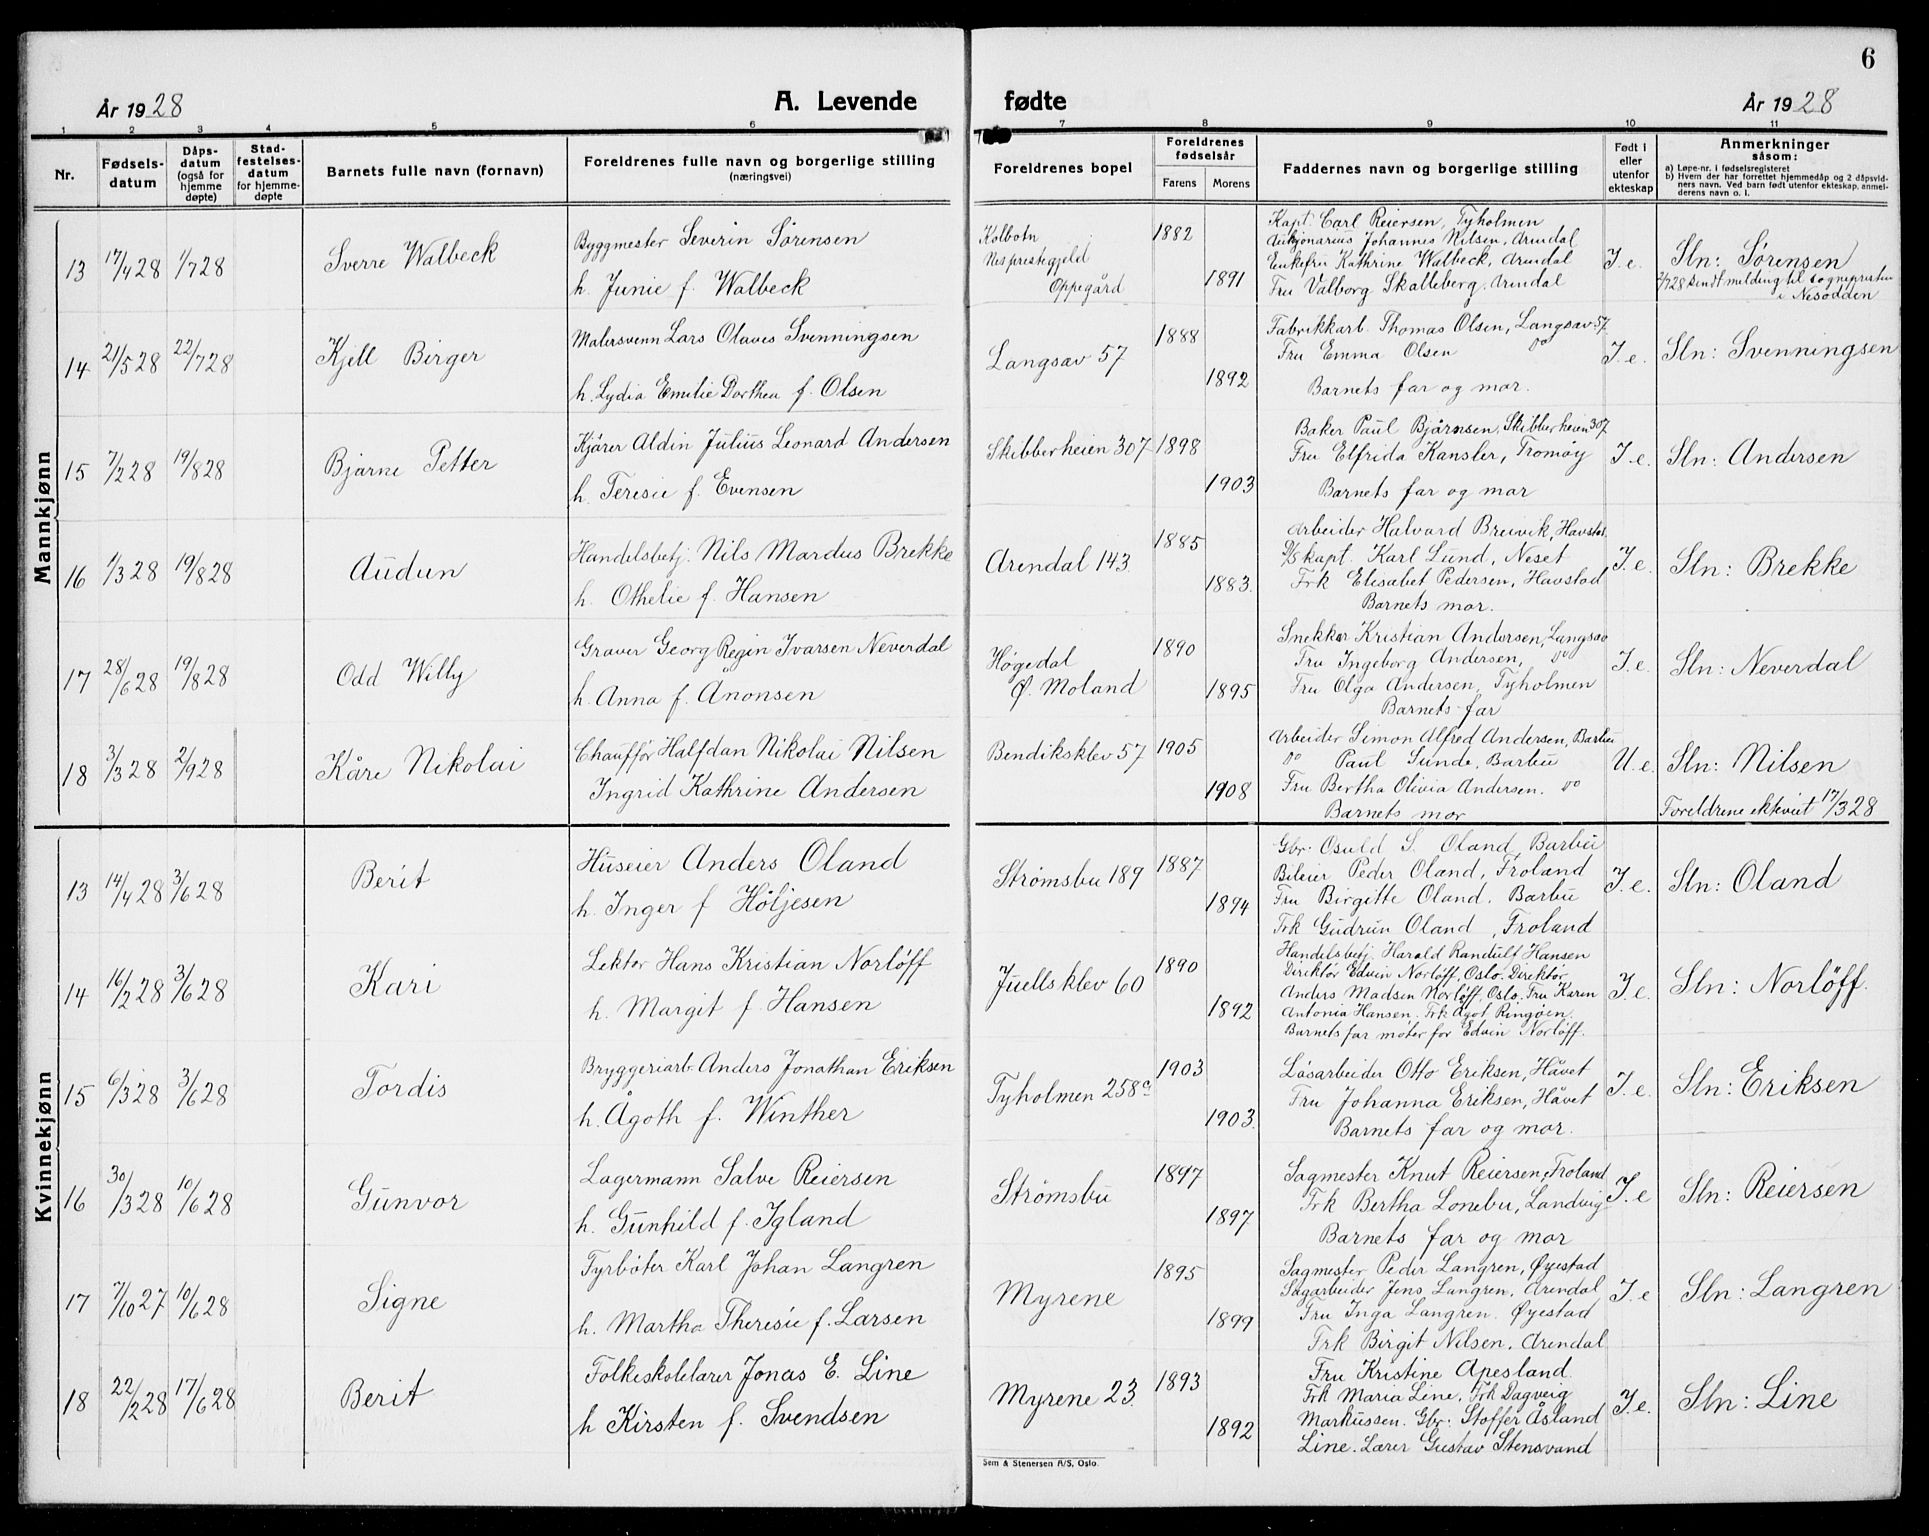 6
År 1928
A. Levende
fødte
År 1928
1 2 3 4 5 6 7 8 9 10 11
Nr.
Fødsels-
datum
Dåps-
datum
(også for
hjemme
døpte)
Stad-
festelses-
datum
for hjemme-
døpte
Barnets fulle navn (fornavn)
Foreldrenes fulle navn og borgerlige stilling
(næringsvei)
Foreldrenes bopel
Foreldrenes
fødselsår
Farens Morens
Faddernes navn og borgerlige stilling
Født i
eller
utenfor
ekteskap
Anmerkninger
såsom:
a) Løpe-nr. i fødselsregisteret
b) Hvem der har forrettet hjemmedåp og 2 dåpsvid-
ners navn. Ved barn født utenfor ekteskap, anmel-
derens navn o. l.
Mannkjønn
13 17/4 28 1/7 28 Sverre Walbeck
Byggmester Severin Sörensen
h. Junie f. Walbeck
Kolbotn
Nes prestegjeld
Oppegård
1882
1891
Kapt. Carl Reiersen, Tyholmen
Johannes Nilsen, Arendal
Enkefru Kathrine Walbeck, Arendal
Fru Valborg Skalleberg, Arendal
I. e.
Sln: Sørensen
2/7 28 sendt melding til sognepresten
i Nesodden
14 21/5 28 22/7 28 Kjell Birger
Malersvenn Lars Olaves Svenningsen
h. Lydia Emilie Dorthea f. Olsen
Langsæv 57
1888
1892
Fabrikkarb. Thomas Olsen, Langsæv 57
Fru Emma Olsen do
Barnets far og mor.
I. e.
Sln: Svenningsen
15 7/2 28 19/8 28 Bjarne Petter
Kjörer Aldin Julius Leonard Andersen
h. Teresie f. Evensen
Skibberheien 307
1898
1903
Baker Paul Bjørnsen, Skibberheien 307
Fru Elfrida Kansler, Tromøy
Barnets far og mor
I. e.
Sln: Andersen
16 1/3 28 19/8 28 Audun
Handelsbetj. Nils Mardus Brekke
h. Othelie f. Hansen
Arendal 143
1885
1883.
Arbeider Halvard Breivik, Havstad
D/Skapt. Karl Lund, Neset
Frk Elisabet Pedersen, Havstad
Barnets mor.
I. e.
Sln: Brekke
17 28/6 28 19/8 28 Odd Willy
Graver Georg Regin Ivarsen Neverdal
h. Anna f. Anonsen
Høgedal
Ø. Moland
1890
1895
Snekker Kristian Andersen, Langsæv
Fru Ingeborg Andersen, do
Fru Olga Andersen, Tyholmen
Barnets far
I. e.
Sln: Neverdal
18 3/3 28 2/9 28 Kåre Nikolai
Chauffør Halfdan Nikolai Nilsen
Ingrid Kathrine Andersen
Bendiksklev 57
1905
1908
Arbeider Simon Alfred Andersen, Barbu
do Paul Sunde, Barbu
Fru Bertha Olivia Andersen. do
Barnets mor
U. e.
Sln: Nilsen
Foreldrene ektviet 17/3 28
Kvinnekjønn
13 14/4 28 3/6 28 Berit
Huseier Anders Oland
h. Inger f Höljesen
Strømsbu 189
1887
1894
Gbr. Osuld S. Oland, Barbu
Bileier Peder Oland, Froland
Fru Birgitte Oland. Barbu
Frk Gudrun Oland, Froland
I. e.
Sln: Oland
14 16/2 28 3/6 28 Kari
Lektor Hans Kristian Norløff
h. Margit f Hansen
Juellsklev 60
1890
1892
Handelsbetj. Harald Randulf Hansen
Direktør Edvin Norløff, Oslo. Direktør
Anders Madsen Norløff, Oslo. Fru Karen
Antonia Hansen. Frk Ågot Ringöen.
Barnets far møter for Edvin Norløff.
I. e.
Sln: Norløff.
15 6/3 28 3/6 28 Tordis
Bryggeriarb. Anders Jonathan Eriksen
h. Ågoth f. Winther
Tyholmen 258a
1903
1903.
Løsarbeider Otto Eriksen, Håvet
Fru Johanna Eriksen, Håvet
Barnets far og mor.
I. e.
Sln: Eriksen
16 30/3 28 10/6 28 Gunvor
Lagermann Salve Reiersen
h. Gunhild f. Igland
Strømsbu
1897
1897
Sagmester Knut Reiersen, Froland
Frk Bertha Lonebu, Landvig
Barnets far og mor
I. e
Sln: Reiersen
17 7/10 27 10/6 28 Signe
Fyrbøter Karl Johan Langren
h. Martha Theresie f. Larsen
Myrene
1895
1899
Sagmester Peder Langren, Øyestad
Sagarbeider Jens Langren, Arendal
Fru Inga Langren. Øyestad
Frk Birgit Nilsen, Arendal
I. e
Sln: Langren
18 22/2 28 17/6 28 Berit
Folkeskolelærer Jonas E. Line
h Kirsten f. Svendsen
Myrene 23.
1893
1892
Fru Kristine Apesland.
Frk Maria Line, Frk Dagveig
Markussen. Gbr: Stoffer Åsland
Line. Lærer Gustav Stensvand
I. e.
Sln: Line
Sem & Stenersen A/S, Oslo.